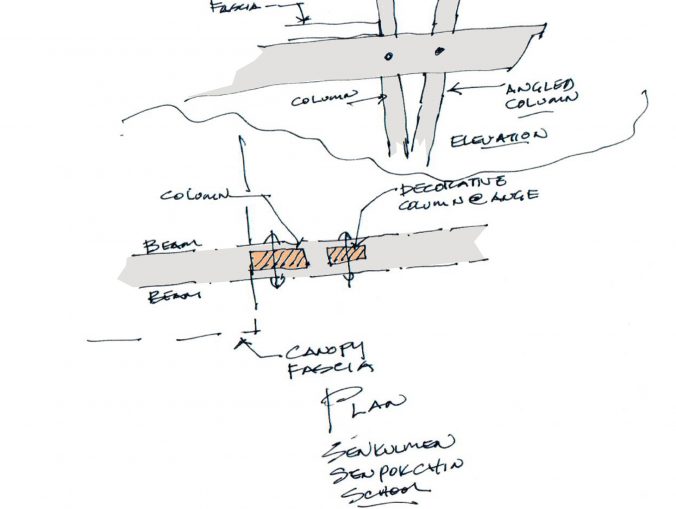 FASCIA
COLUMN
ANGLED
COLUMN
ELEVATION
COLUMN
DECORATIVE
COLUMN @ ANGE
BEAM
BEAM
CANOPY
FASCIA
PLAN
SENKULMEN
SENPOKCHIN
SCHOOL